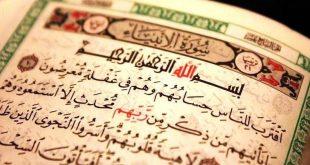 سُورَةُ الأَنبِيَاءِ
بِسْمِ اللَّهِ الرَّحْمَٰنِ الرَّحِيمِ
اقْتَرَبَ لِلنَّاسِ حِسَابُهُمْ وَهُمْ فِي غَفْلَةٍ مُّعْرِضُونَ
مَا يَأْتِيهِم مِّن ذِكْرٍ مِّن رَّبِّهِم مُّحْدَثٍ إِلَّا اسْتَمَعُوهُ وَهُمْ
لَاهِيَةً قُلُوبُهُمْ وَأَسَرُّوا النَّجْوَى الَّذِينَ
أَفَتَأْتُونَ